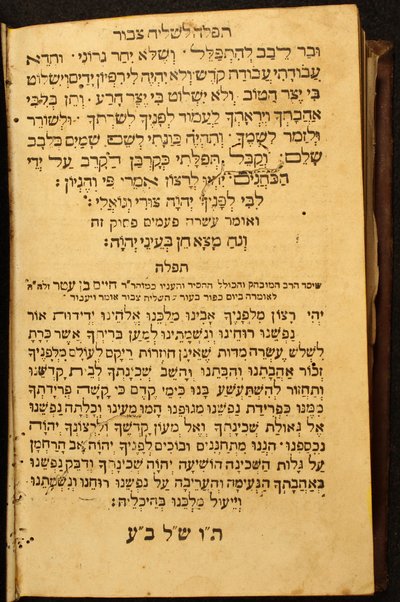 תפלה לשליח צבור
ובר לבב להתפלל ושלא יחר גרוני ותהא
עבודתי עבודת קדש ולא יהיה לי רפיון ידים וישלוט
בי יצר הטוב ולא ישלוט בי יצר הרע ותן בלבי
אהבתך ויראתך לעמוד לפניך לשרתך ולשורר
ולזמר לשמך ותהיה כונתי לשם שמים בלבב
שלם וקבל תפלתי כקרבן הקרב על ידי
הכהנים יהיו לרצון אמרי פי והגיון
לבי לפניך יהוה צורי וגואלי:
ואומר עשרה פעמים פסוק זה
ונח מצא חן בעיני יהוה:
תפלה
שיסד הרב המובהק והכולל החסיד והעניו כמוהר״ר חיים בן עטר זלה״ה
לאומרה ביום כפור בעוד השליח צבור אומר ויעבור
יהי רצון מלפניך אבינו מלכנו אלהינו ידידות אור
נפשנו רוחינו ונשמתינו למען בריתך אשר כרת
לשלש עשרה מדות שאינן חוזרות ריקם לעולם מלפניך
זכור אהבתנו וחבתנו והשב שכינתך לבית קדשנו
ותחזור להשתעשע בנו כימי קדם כי קשה פרידתך
ממנו כפרידת נפשנו מגופנו המו מעינו וכלתה נפשנו
אל גאולת שכינתך ואל מעון קדשך ולרצונך יהוה
נכספנו הננו מתחננים ובוכים לפניך יהוה אב הרחמן
על גלות השכינה הושיעה יהוה שכינתך ודבק נפשנו
באהבתך הנעימה והעריבה על נפשנו רוחנו ונשמתנו
ויעול מלכנו בהיכליה:
ת״ו ש״ל ב״ע